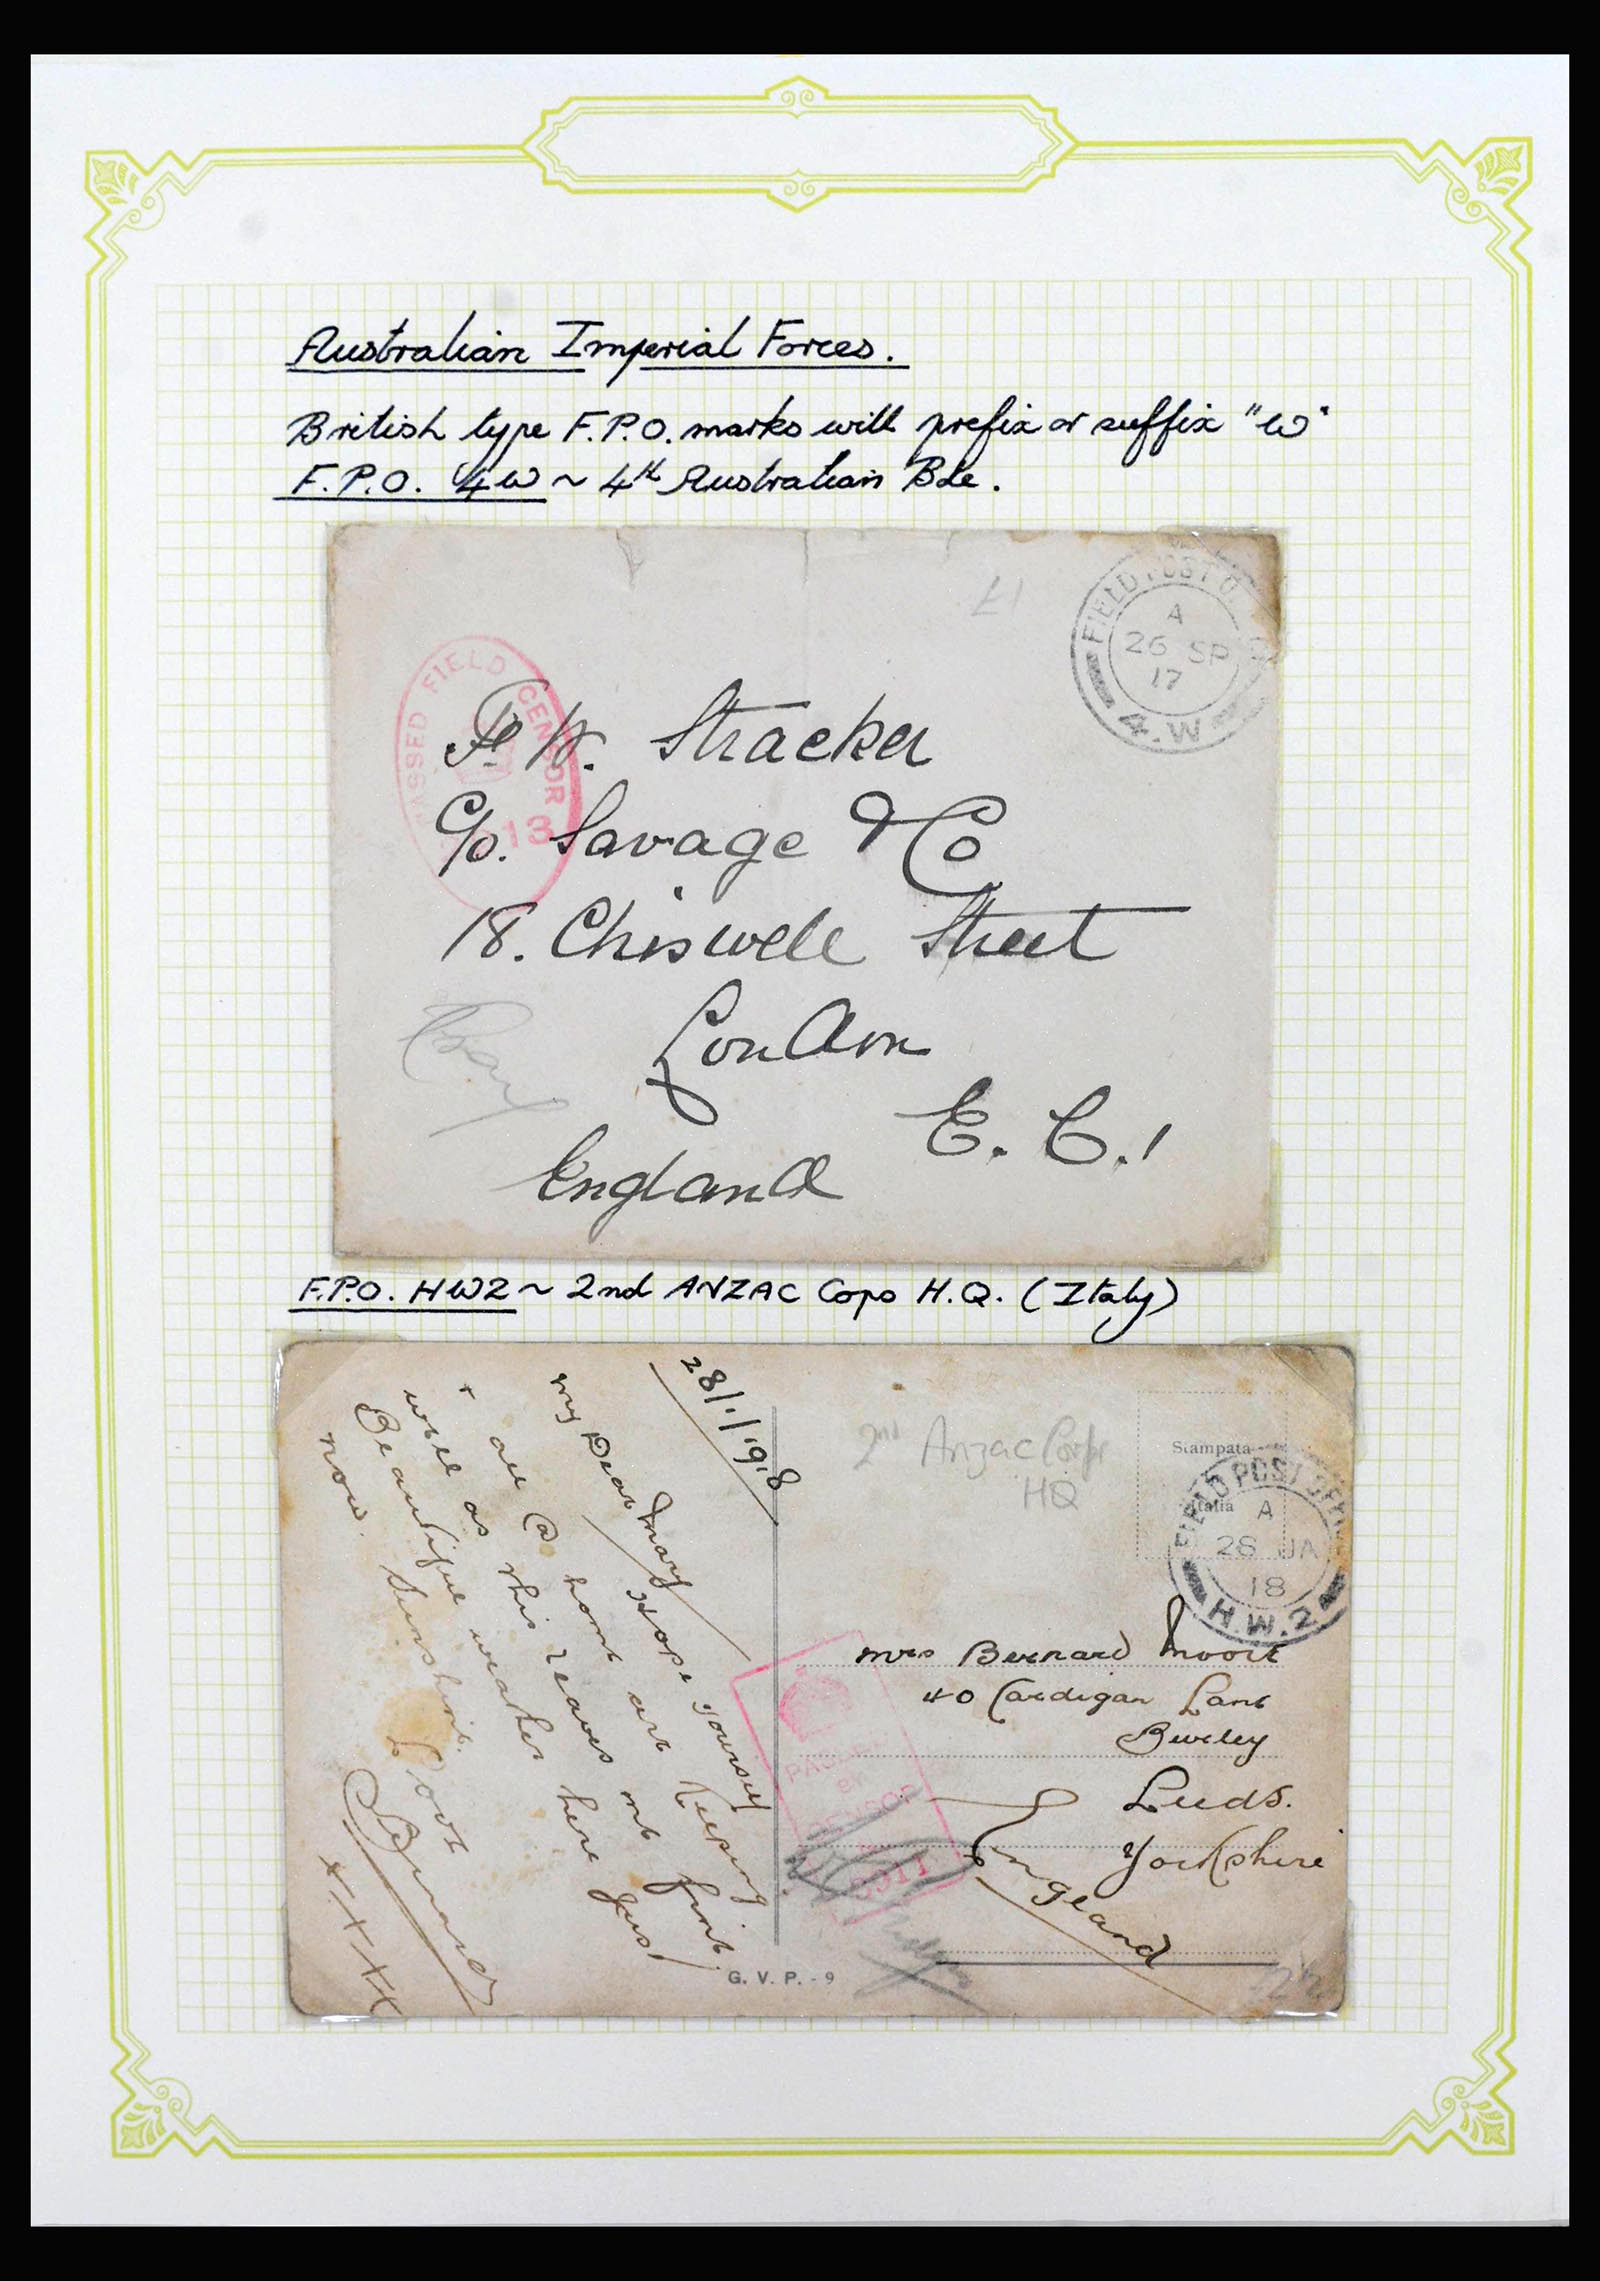 Australian Imperial Forces.
British type F.P.O. marks with prefix or suffix "W"
F.P.O. 4W ~ 4th Australian Bde.
FIELD POST O
A
26 SP
17
4.W
PASSED FIELD CENSOR
13
W. Stracker
C/o. Savage & Co
18. Chiswell Street
London
E. C. 1
England
F.P.O. HW2 ~ 2nd ANZAC Cops H.Q. (Italy)
28/1/1918
My Dear Mary Hope yourself
& all @ home are keeping
well as this leaves me fine
Beautiful weather here just
now. Sunshine.
Love
2nd Anzac Corps
HQ
Stampata
Italia
FIELD POST OFF
A
28 JA
18
H.W.2
Mrs Bernard Moore
40 Cardigan Lane
Burley
Leeds.
Yorkshire
England
PASSED
BY
CENSOR
G. V. P. - 9